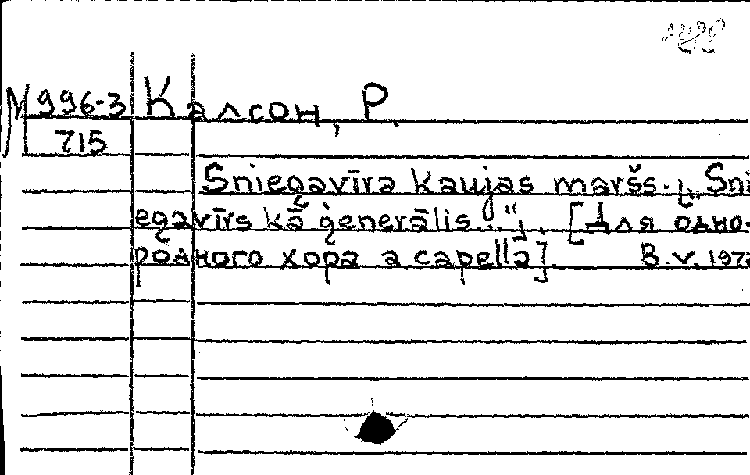 М 996-3 Калсон, Р.
715
Sniegavīra kaujas maršs. „Sni
egavīrs kā ģenerālis..."]. [Для одно-
родного хора a capella]. В. v. 197